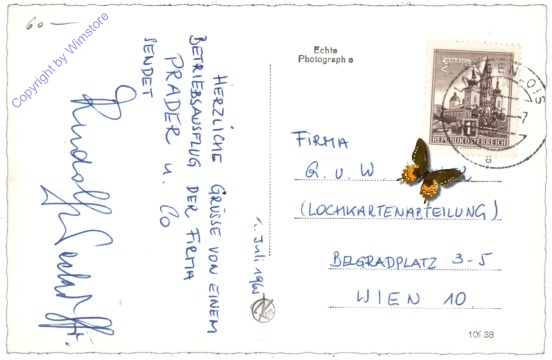 60.—
Copyright by Wimstore
HERZLICHE GRÜSSE VON EINEM
BETRIEBSAUSFLUG DER FIRMA
PRADER u. CO
SENDET
Rudolf
Juli
Echte
Photographie
REPUBLIK ÖSTERREICH
FIRMA
G. u. W.
(LOCHKARTENABTEILUNG)
BELGRADPLATZ 3-5
WIEN 10.
10938